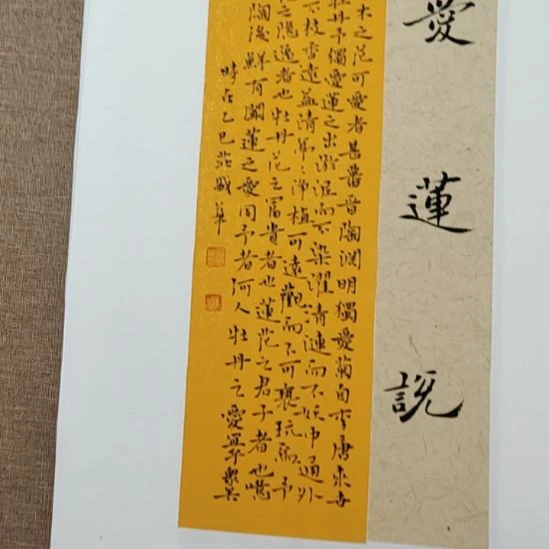 愛蓮說
木之花可愛者甚蕃晉陶淵明獨愛菊自李唐來世
牡丹予獨愛蓮之出淤泥而不染濯清漣而不妖中通外
不枝香遠益清亭〻淨植可遠觀而不可褻玩焉予
之隱逸者也牡丹花之富貴者也蓮花之君子者也噫
陶後鮮有聞蓮之愛同予者何人牡丹之愛宜乎眾矣
時在乙巳